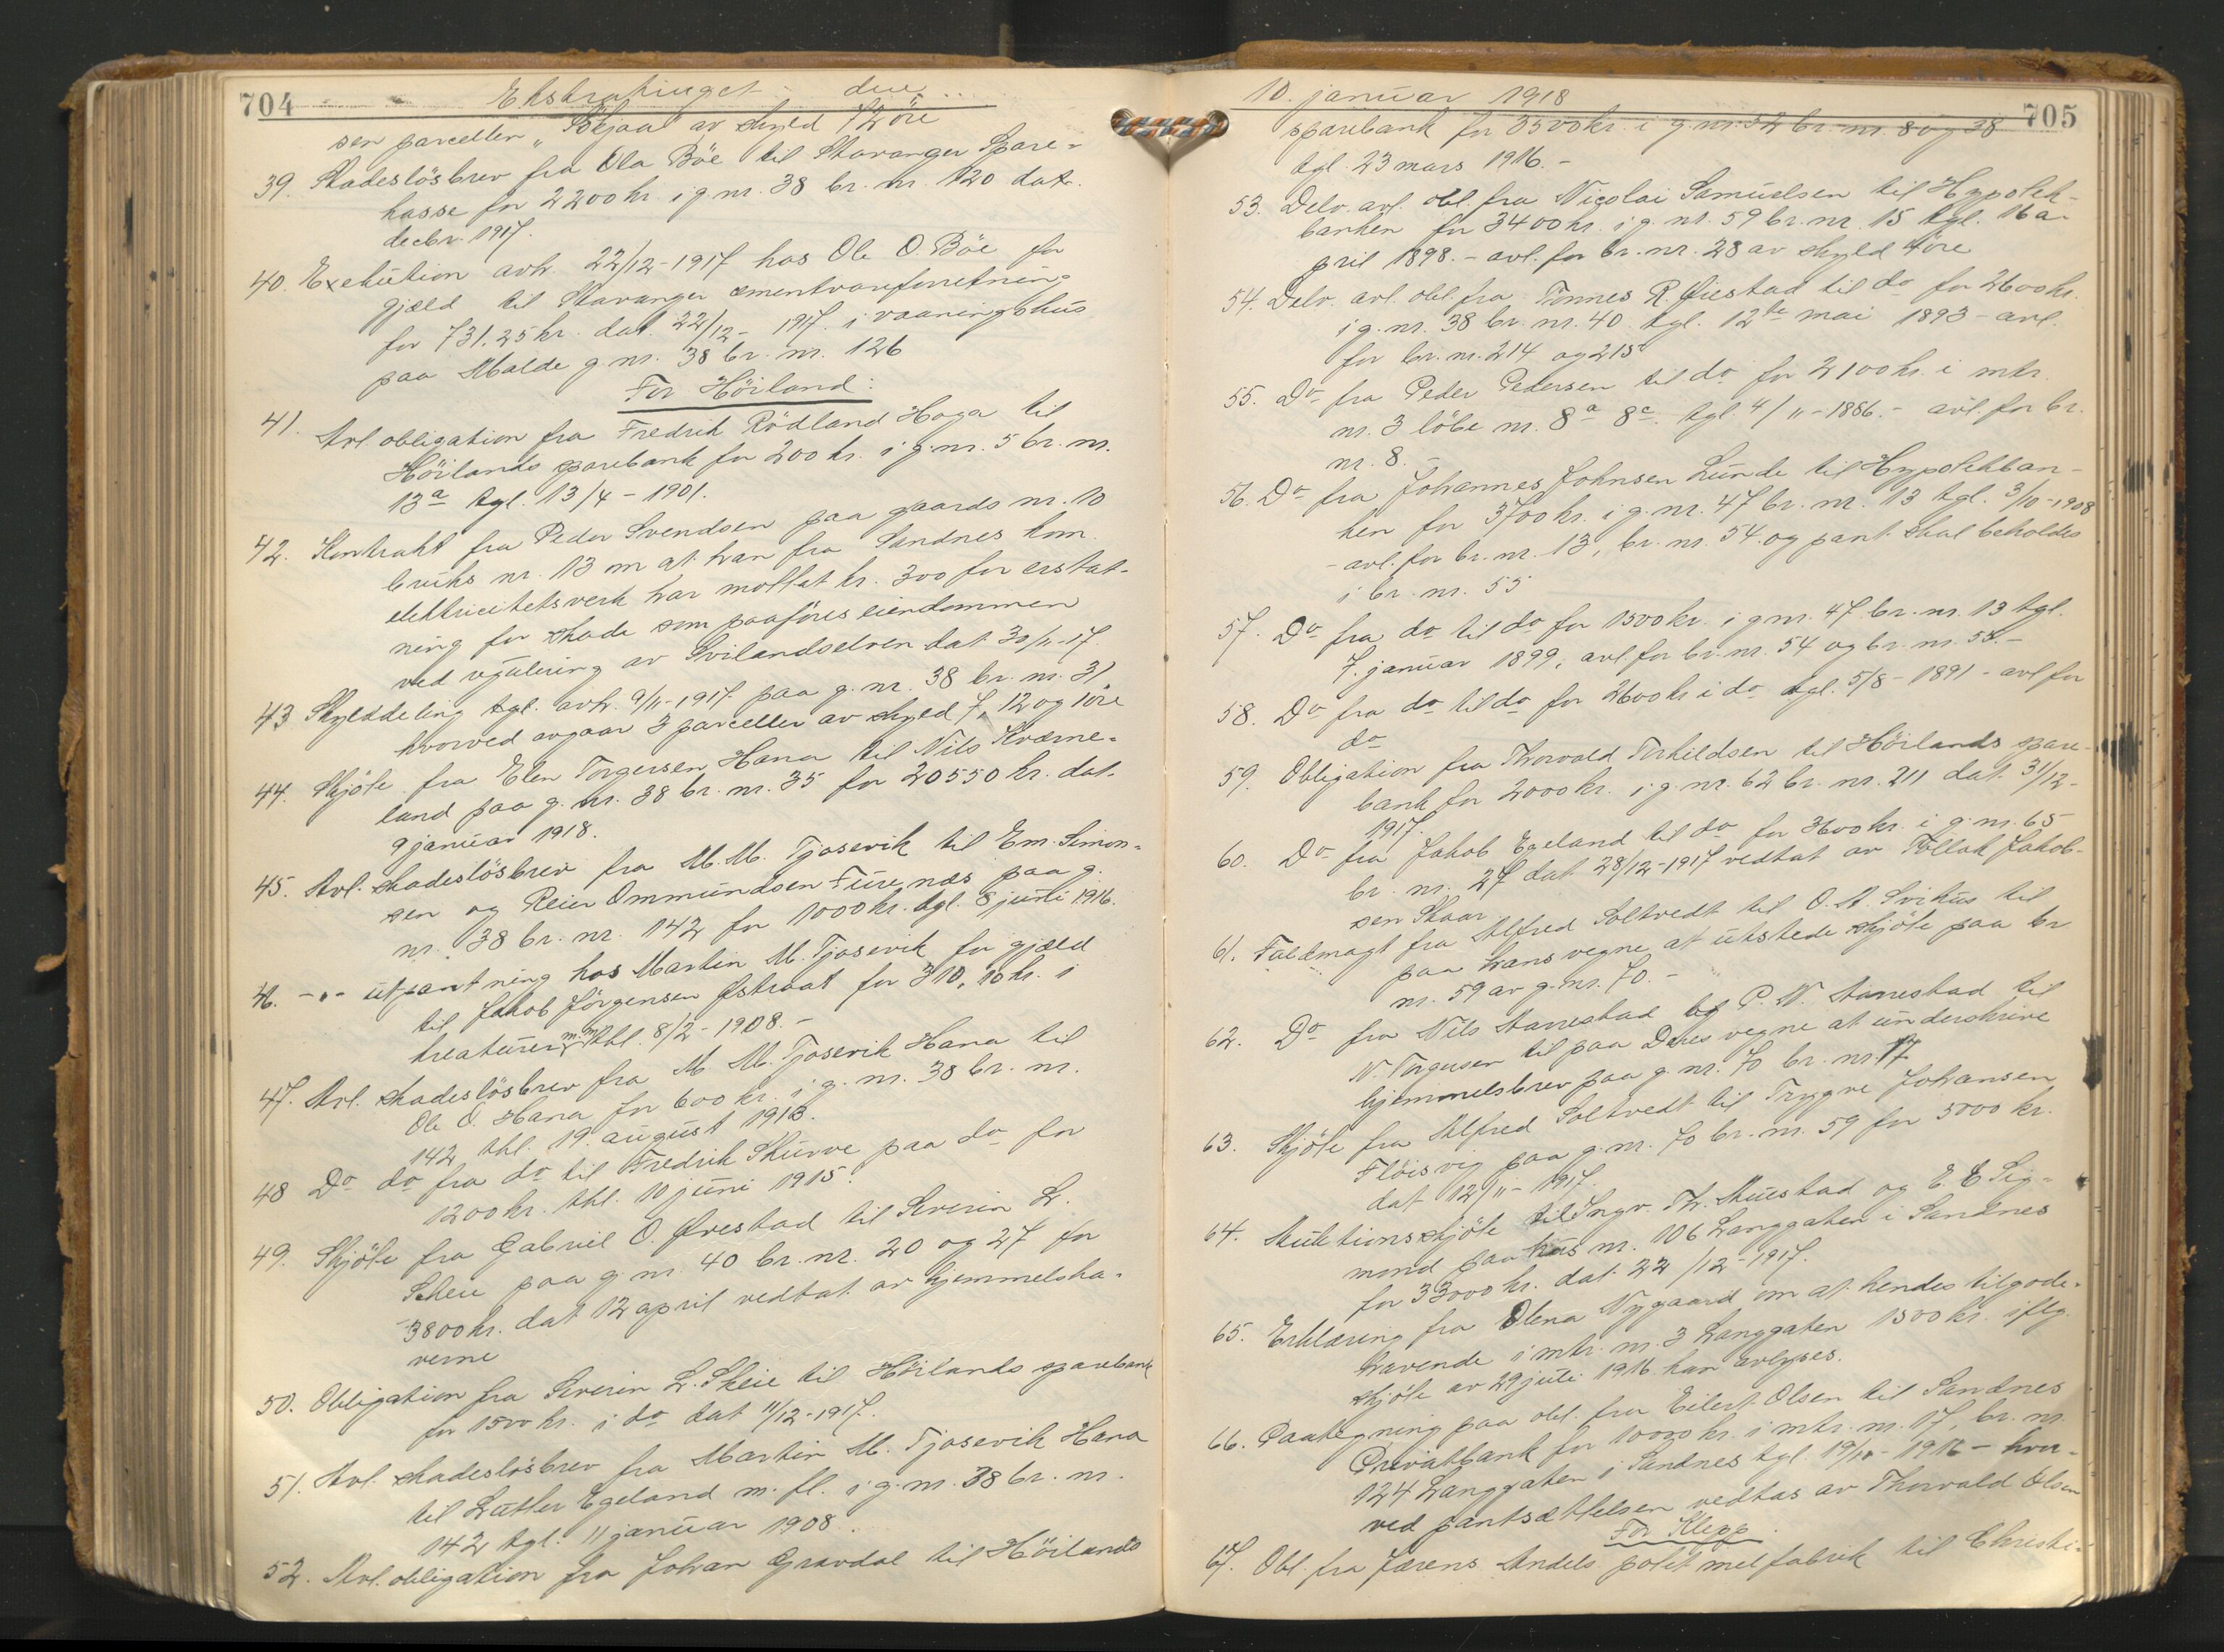 704
Ekstratinget den
sen parcellen „Böljaa" av skyld 72 öre
39. Skadeslösbrev fra Ola Böe til Stavanger Spare=
kasse for 2200 kr. i g.nr. 38 br. nr. 120 dat.
decbr. 1917.
40. Exekution avh. 22/12-1917 hos Ole O. Böe for
gjæld til Stavanger sementvareforretning
for 731.25 kr. dat. 22/12- 1917. i vaaningshus
paa Malde g.nr. 38 br. nr. 126
For Höiland:
41. Avl. obligation fra Fredrik Rödland Hoga til
Höilands sparebank for 200 kr. i g.nr. 5 br. nr.
13a tgl. 13/4-1901.
42. Kontrakt fra Peder Svendsen paa gaards nr. 10
bruks nr. 13 om at han fra Sandnes kom.
elektricitetsverk har mottat kr. 300 for erstat-
ning for skade som paaföres eiendommen
ved regulering av Svilandselven dat 30/11-17.
43 Skylddeling tgl. avh. 9/11-1917 paa g.nr. 38 br. nr. 31
hvorved avgaar 3 parceller av skyld 7, 12 og 1 öre
44. Skjöte fra Elen Torgersen Hana til Nils Kværne=
land paa g. nr. 38 br. nr. 35 for 20550 kr. dat.
9 januar 1918.
45. Avl. skadeslösbrev fra M. M. Tjosevik til Em. Simon=
sen og Reier Ommundsen Furenæs paa g.
nr. 38 br. nr. 142 for 1000 kr. tgl. 8 juni 1916.
46. -"- utpantning hos Martin M. Tjosevik for gjæld
til Jakob Jörgensen Østraat for 310,10 kr. i
kreaturer m.m. tbl. 8/2-1908.-
47. Avl. skadeslösbrev fra M M. Tjosevik Hana til
Ole O. Hana for 600 kr. i g. nr. 38 br. nr.
142 tbl. 19 august 1913.
48 Do do fra do til Fredrik Skurve paa do for
1200 kr. tbl. 10 juni 1915.
49. Skjöte fra Gabriel O. Øvestad til Severin L.
Skeie paa g.nr. 40 br. nr. 20 og 27 for
3800 kr. dat 12 april vedtat av hjemmelsha-
verne
50. Obligation fra Severin L. Skeie til Höilands sparebank
for 1500 kr. i do dat 11/12-1917.
51. Avl. skadeslösbrev fra Martin M. Tjosevik Hana
til Luther Egeland m. fl. i g.nr. 38 br. nr.
142 tgl. 11 januar 1908.
52. Avl. obligation fra Johan Gravdal til Höilands
10. januar 1918
705
sparebank for 3500 kr. i g.nr. 52 br. nr. 8 og 38
tgl. 23 mars 1916.-
53. Delv. avl. obl. fra Nicolai Samuelsen til Hypothek-
banken for 3400 kr. i g. nr. 59 br. nr. 15 tgl. 16 a-
pril 1898.- avl. for br. nr. 28 av skyld 4 öre
54. Delv. avl. obl. fra Tönnes R. Øiestad til do for 2600 kr.
i g.nr. 38 br. nr. 40. tgl. 12te mai 1893- avl.
for br. nr. 214 og 215
55. Do fra Peder Pedersen til do for 2100 kr. i mtr.
nr. 3 löbe nr. 8a 8c. tgl. 4/11-1886.- avl. for br.
nr. 8.-
56. Do fra Johannes Johnsen Lunde til Hypothekban-
ken for 3700 kr. i g. nr. 47 br. nr. 13 tgl. 3/10-1908
- avl. for br. nr. 13, br. nr. 54. og pant skal beholdes
i br. nr. 55
57. Do fra do til do for 1500 kr. i g.nr. 47. br. nr. 13 tgl.
7. januar 1899, avl. for br. nr. 54 og br. nr. 55.-
58. Do fra do til do for 2600 kr i do tgl. 5/8-1891- avl for
do
59. Obligation fra Thorvald Torkildsen til Höilands spare-
bank for 2000 kr. i g. nr. 62 br. nr. 211 dat. 31/12-
1917.
60. Do fra Jakob Egeland til do for 3600 kr. i g.nr. 65
br. nr. 27 dat 28/12-1917 vedtat av Tollak Jakob-
sen Skaar
61. Fuldmagt fra Alfred Soltvedt til O. A. Svihus til
paa hans vegne at utstede skjöte paa br
nr. 59 av g.nr. 70.-
62. Do fra Nils Aarrestad og P. N. Aarrestad til
N. Torgersen til paa Deres vegne at underskrive
hjemmelsbrev paa g.nr. 70 br. nr. 17
63. Skjöte fra Alfred Soltvedt til Trygve Johansen
Flöisvig paa g.nr. 70 br. nr. 59 for 5000 kr.
dat 12/11-1917.
64. Auktionsskjöte til Ingv. Th. Auestad og E. E Sig=
mond paa hus nr. 106 Langgaten i Sandnes
for 33000 kr. dat 22/12-1917.
65. Erklæring fra Olena Nygaard om at hendes tilgode-
havende i mtr. nr. 3 Langgaten 1500 kr. iflg.
skjöte av 29 juli 1916 kan avlyses.
66. Paategning paa obl. fra Eilert Olsen til Sandnes
Privatbank for 10000 kr. i mtr. nr. 17, br. nr.
124 Langgaten i Sandnes tgl. 19/10-1916- hvor-
ved pantsættelsen vedtas av Thorvald Olsen
For Klepp
67. Obl. fra Jærens Andels potetmelfabrik til Christi-